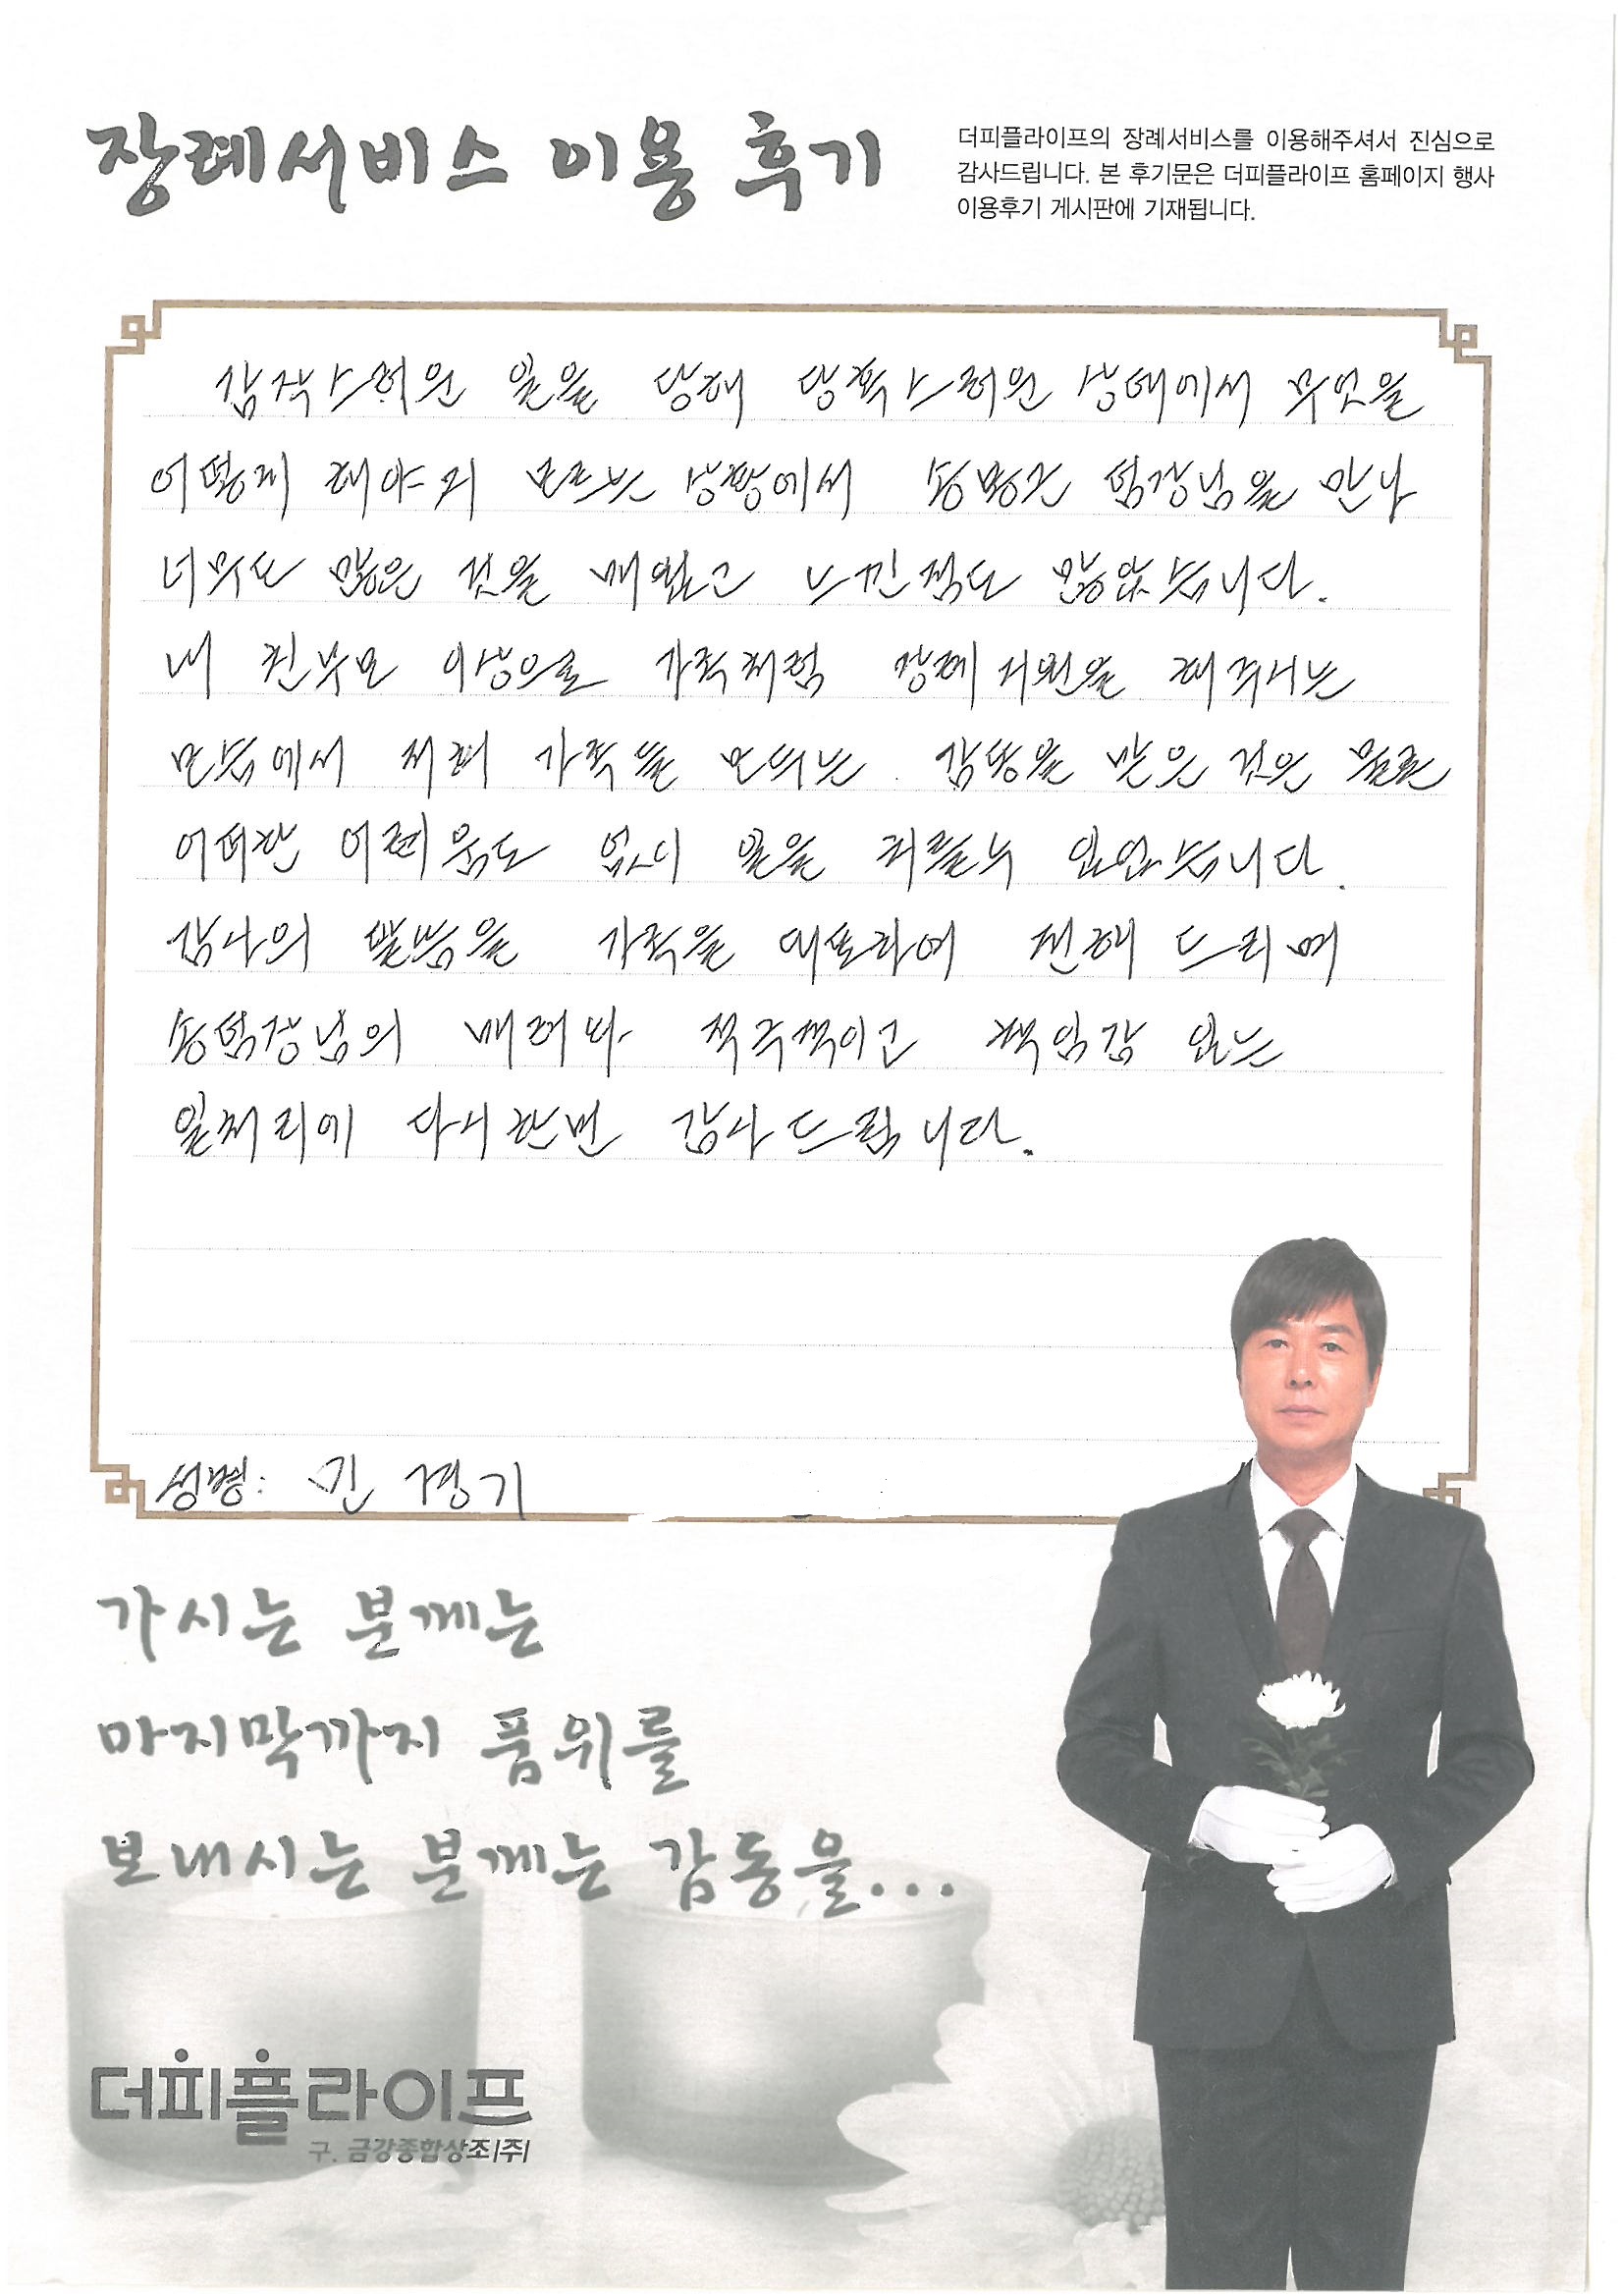 장례서비스 이용 후기
더피플라이프의 장례서비스를 이용해주셔서 진심으로
감사드립니다. 본 후기문은 더피플라이프 홈페이지 행사
이용후기 게시판에 기재됩니다.
갑작스러운 일을 당해 당혹스러운 상태에서 무엇을
어떻게 해야 지 모르는 상황에서 송명근 팀장님을 만나
너무도 많은 것을 배웠고 느낀점도 많았습니다.
내 친부모 이상으로 가족처럼 장례 지원을 해 주시는
모습에서 저희 가족들 모두는 감동을 받은 것은 물론
어떠한 어려움도 없이 일을 치를수 있었습니다.
감사의 말씀을 가족을 대표하여 전해 드리며
송팀장님의 배려와 적극적이고 책임감 있는
일처리에 다시한번 감사드립니다.
성명: 경기
가시는 분께는
마지막까지 품위를
보내시는 분께는 감동을...
더피플라이프
구. 금강종합상조(주)